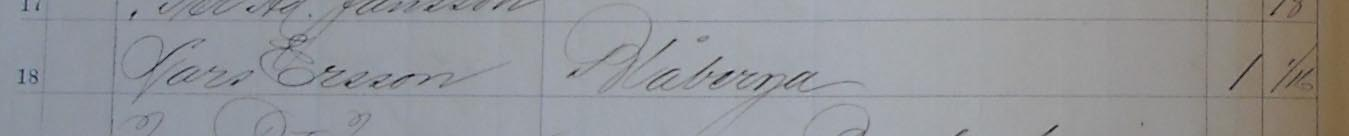 17 Jansson
18 Lars Ersson Blåberga 1 1/16